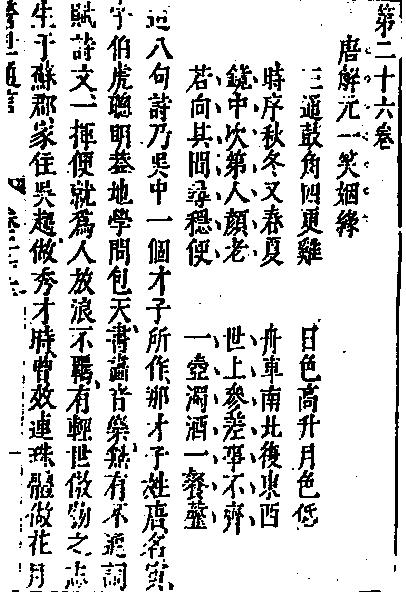 第二十六卷
唐解元一笑姻緣
三通鼓角四更雞　日色高升月色低
時序秋冬又春夏　舟車南北復東西
鏡中次第人顏老　世上參差事不齊
若向其間尋穩便　一壺濁酒一餐虀
這八句詩乃吳中一個才子所作那才子姓唐名寅
字伯虎聰明葢地學問包天書畫音樂無有不通詞
賦詩文一揮便就爲人放浪不羈有輕世傲物之志
生于蘇郡家住吳趨做秀才時曾效連珠體做花月
警世通言